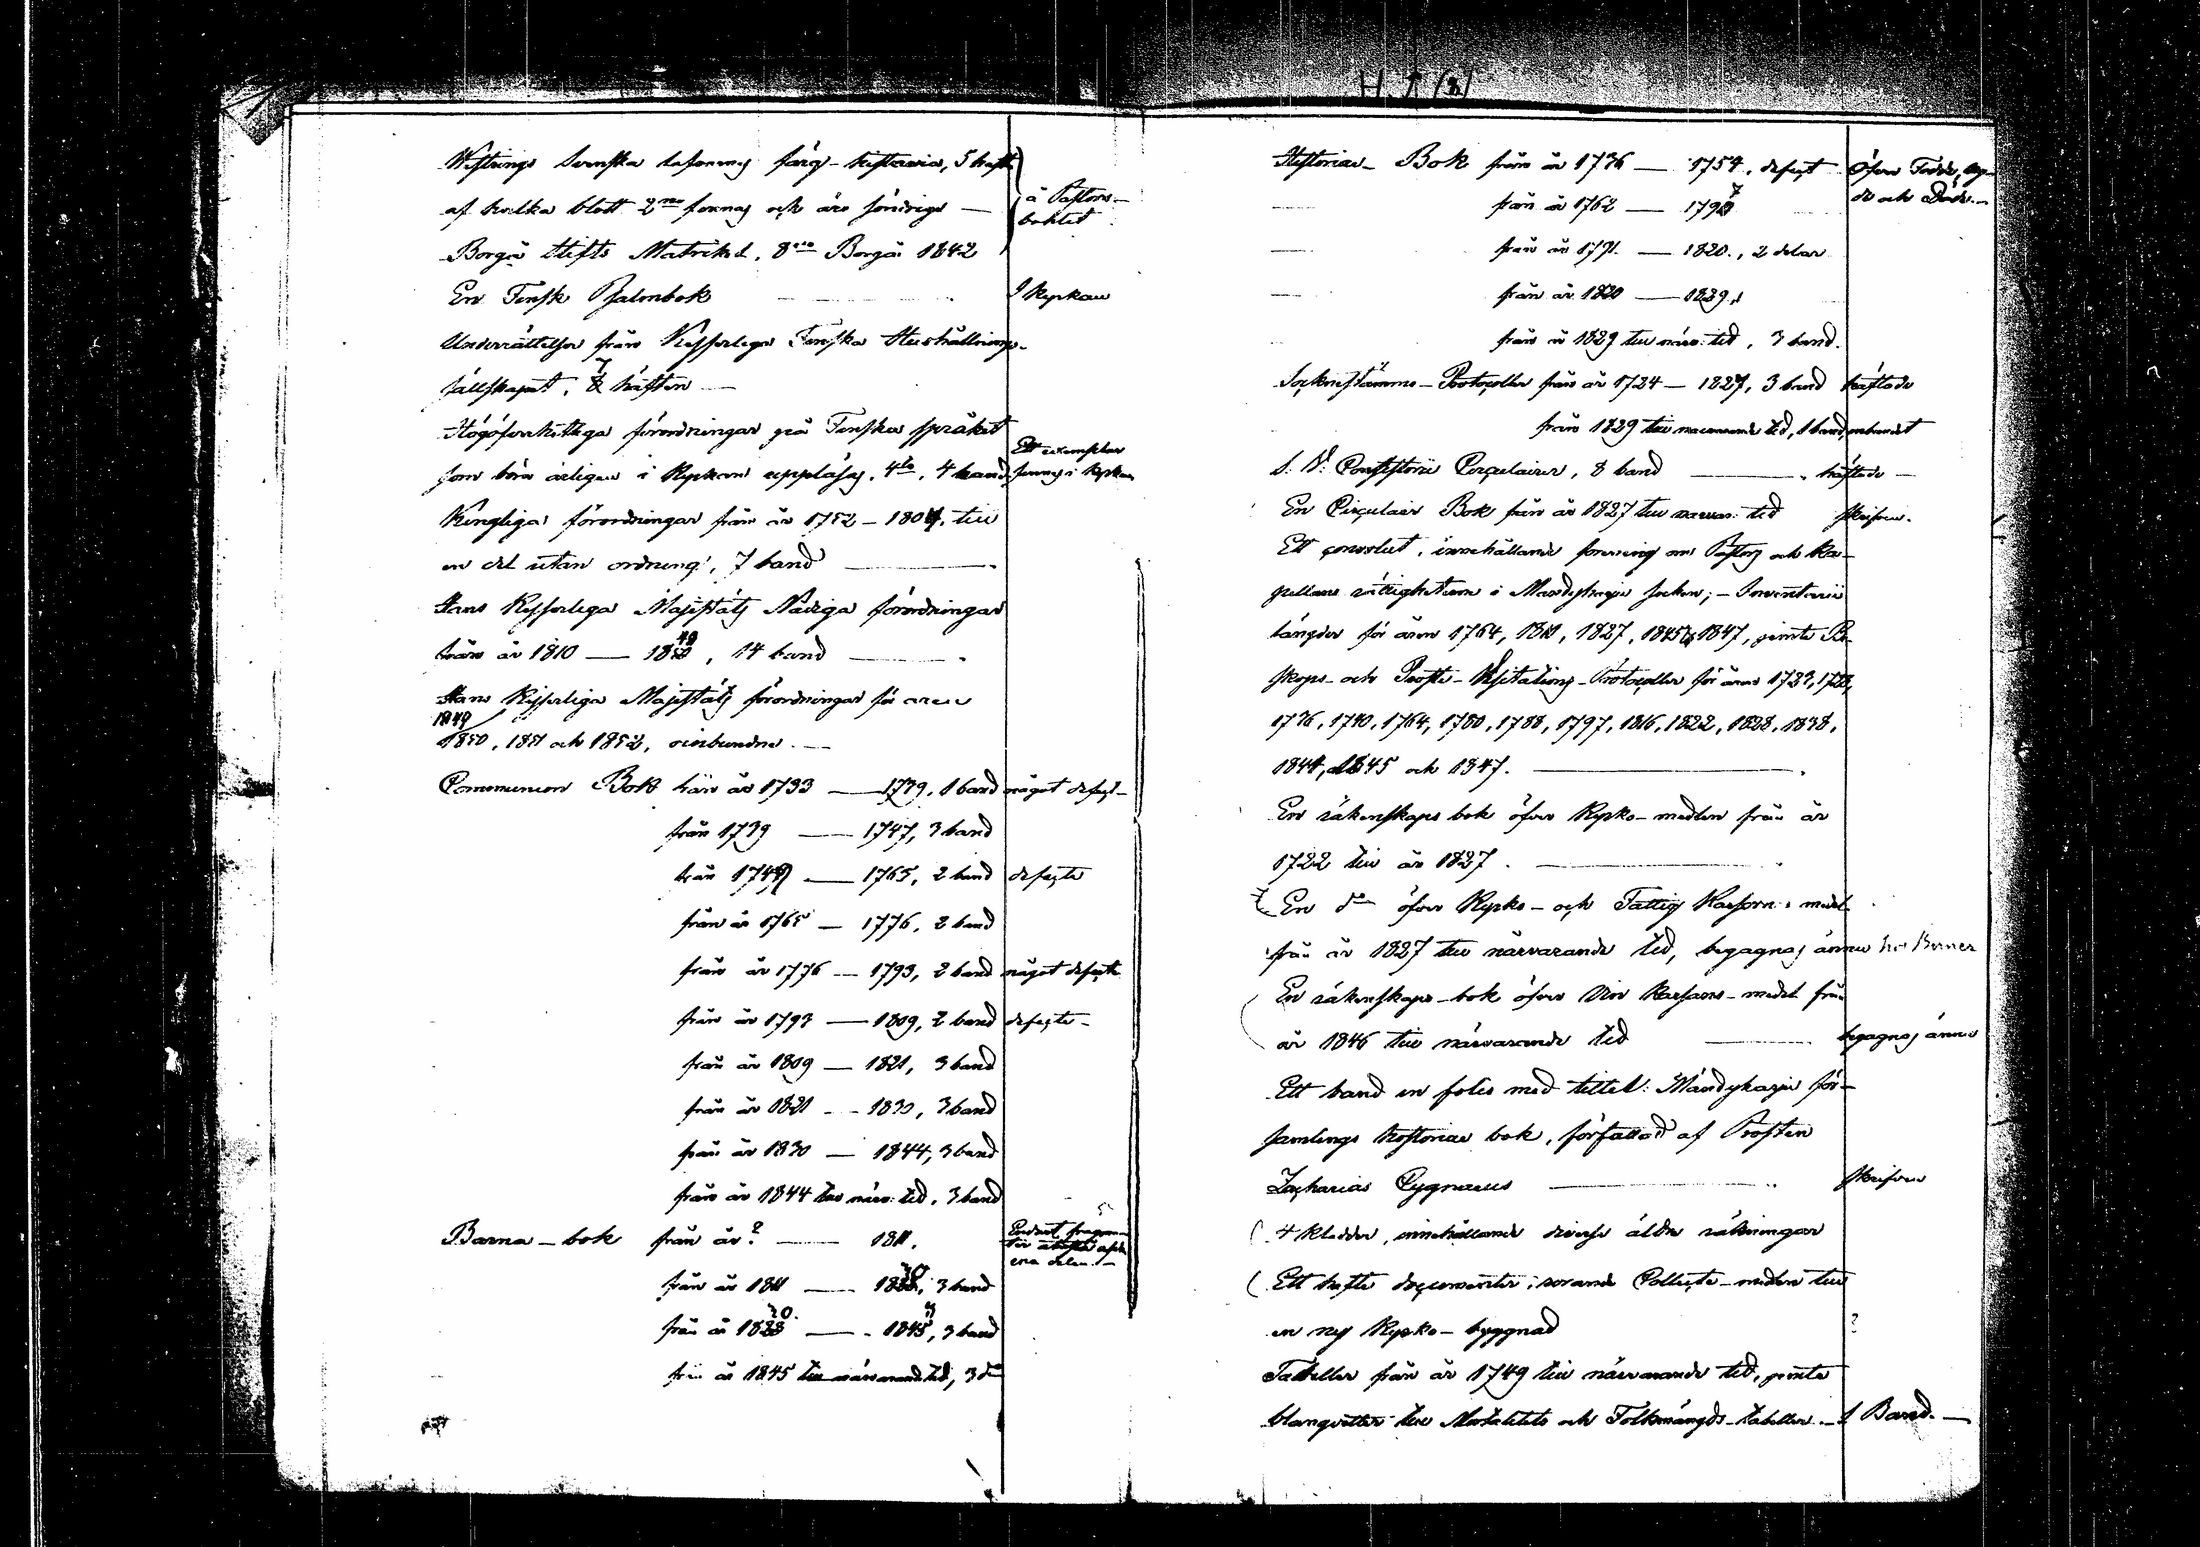 H. 1 (8)
Westrings Svenska lafvarnas färg-historia, 5 häft.
af hvilka blott 2ne finnas och äro söndrige —
å Pastors-
bohlet
Borgå Stifts Matrikel, 8vo Borgå 1842
En Finsk Psalmbok
I Kyrkan
Underrättelser från Kejserliga Finska Hushållnings-
sällskapet, 7 häften —
Högöfverhetliga förordningar på Finska språket
som böra årligen i Kyrkan uppläsas, 4to, 4 band
Ett exemplar
finnes i Kyrkan
Kungliga förordningar från år 1752 — 1807, till
en del utan ordning, 7 band —
Hans Kejserliga Majestäts Nådiga förordningar
från år 1810 — 1849, 14 band —
Hans Kejserliga Majestäts förordningar för åren
1849
1850, 1851 och 1852, oinbundne —
Communion Bok från år 1733 — 1739, 1 band något defect —
från 1739 — 1747, 3 band
från 1749 — 1765, 2 band defecte
från år 1765 — 1776, 2 band
från år 1776 — 1793, 2 band något defecte
från år 1793 — 1809, 2 band defecte —
från år 1809 — 1821, 3 band
från år 1821 — 1830, 3 band
från år 1830 — 1844, 3 band
från år 1844 till närv: tid, 3 band
Barna-bok från år ? — 1811.
Endast fragmen-
ter
ena delen. —
från år 1811 — 3 band
från år — 3 band
från år 1845 till närvarande tid, 3 do
Historiae-Bok från år 1736 — 1754, defect
Öfver Födde, Vig-
de och Döde. —
— från år 1762 — 1797
— från år 1791 — 1820, 2 delar
— från år 1820 — 1829,
— från år 1829 till närv: tid, 3 band.
Sockenstämmo-Protocoller från år 1724 — 1827, 3 band häftade
från 1829 till närvarande tid, 1 band, inbundet
S. V: Consistorii Circulairer, 8 band — häftade —
En Circulair Bok från år 1827 till närvar: tid skrifven.
Ett convolut, innehållande förening om Pastors och Ka-
pellans rättigheter i Mandyharju socken; — Inventarii
längder för åren 1764, 1810, 1827, 1845 & 1847, jemte Bi-
skops- och Prosts-Visitations-Protocoller för åren 1723, 1728,
1736, 1740, 1764, 1780, 1788, 1797, 1816, 1822, 1828, 1838,
1841, 1845 och 1847. —
En räkenskaps bok öfver Kyrko-medlen från år
1722 till år 1827. —
En do öfver Kyrko- och Fattig Kassorne: medel
från år 1827 till närvarande tid, begagnas ännu
En räkenskaps-bok öfver Kassans-medel från
år 1846 till närvarande tid — begagnas ännu
Ett band in folio med tittel: Mändyharju för-
samlings historiae bok, författad af Prosten
Zacharias Cygnaeus — skrifven
4 Kladdar, innehållande diverse äldre räkningar
Ett häfte documenter, rörande Collecte-medlen till
en ny Kyrko-byggnad ?
Tabeller från år 1749 till närvarande tid, jemte
blanquetter till Mortalitets och Folkmängds-tabeller. — 1 Band. —